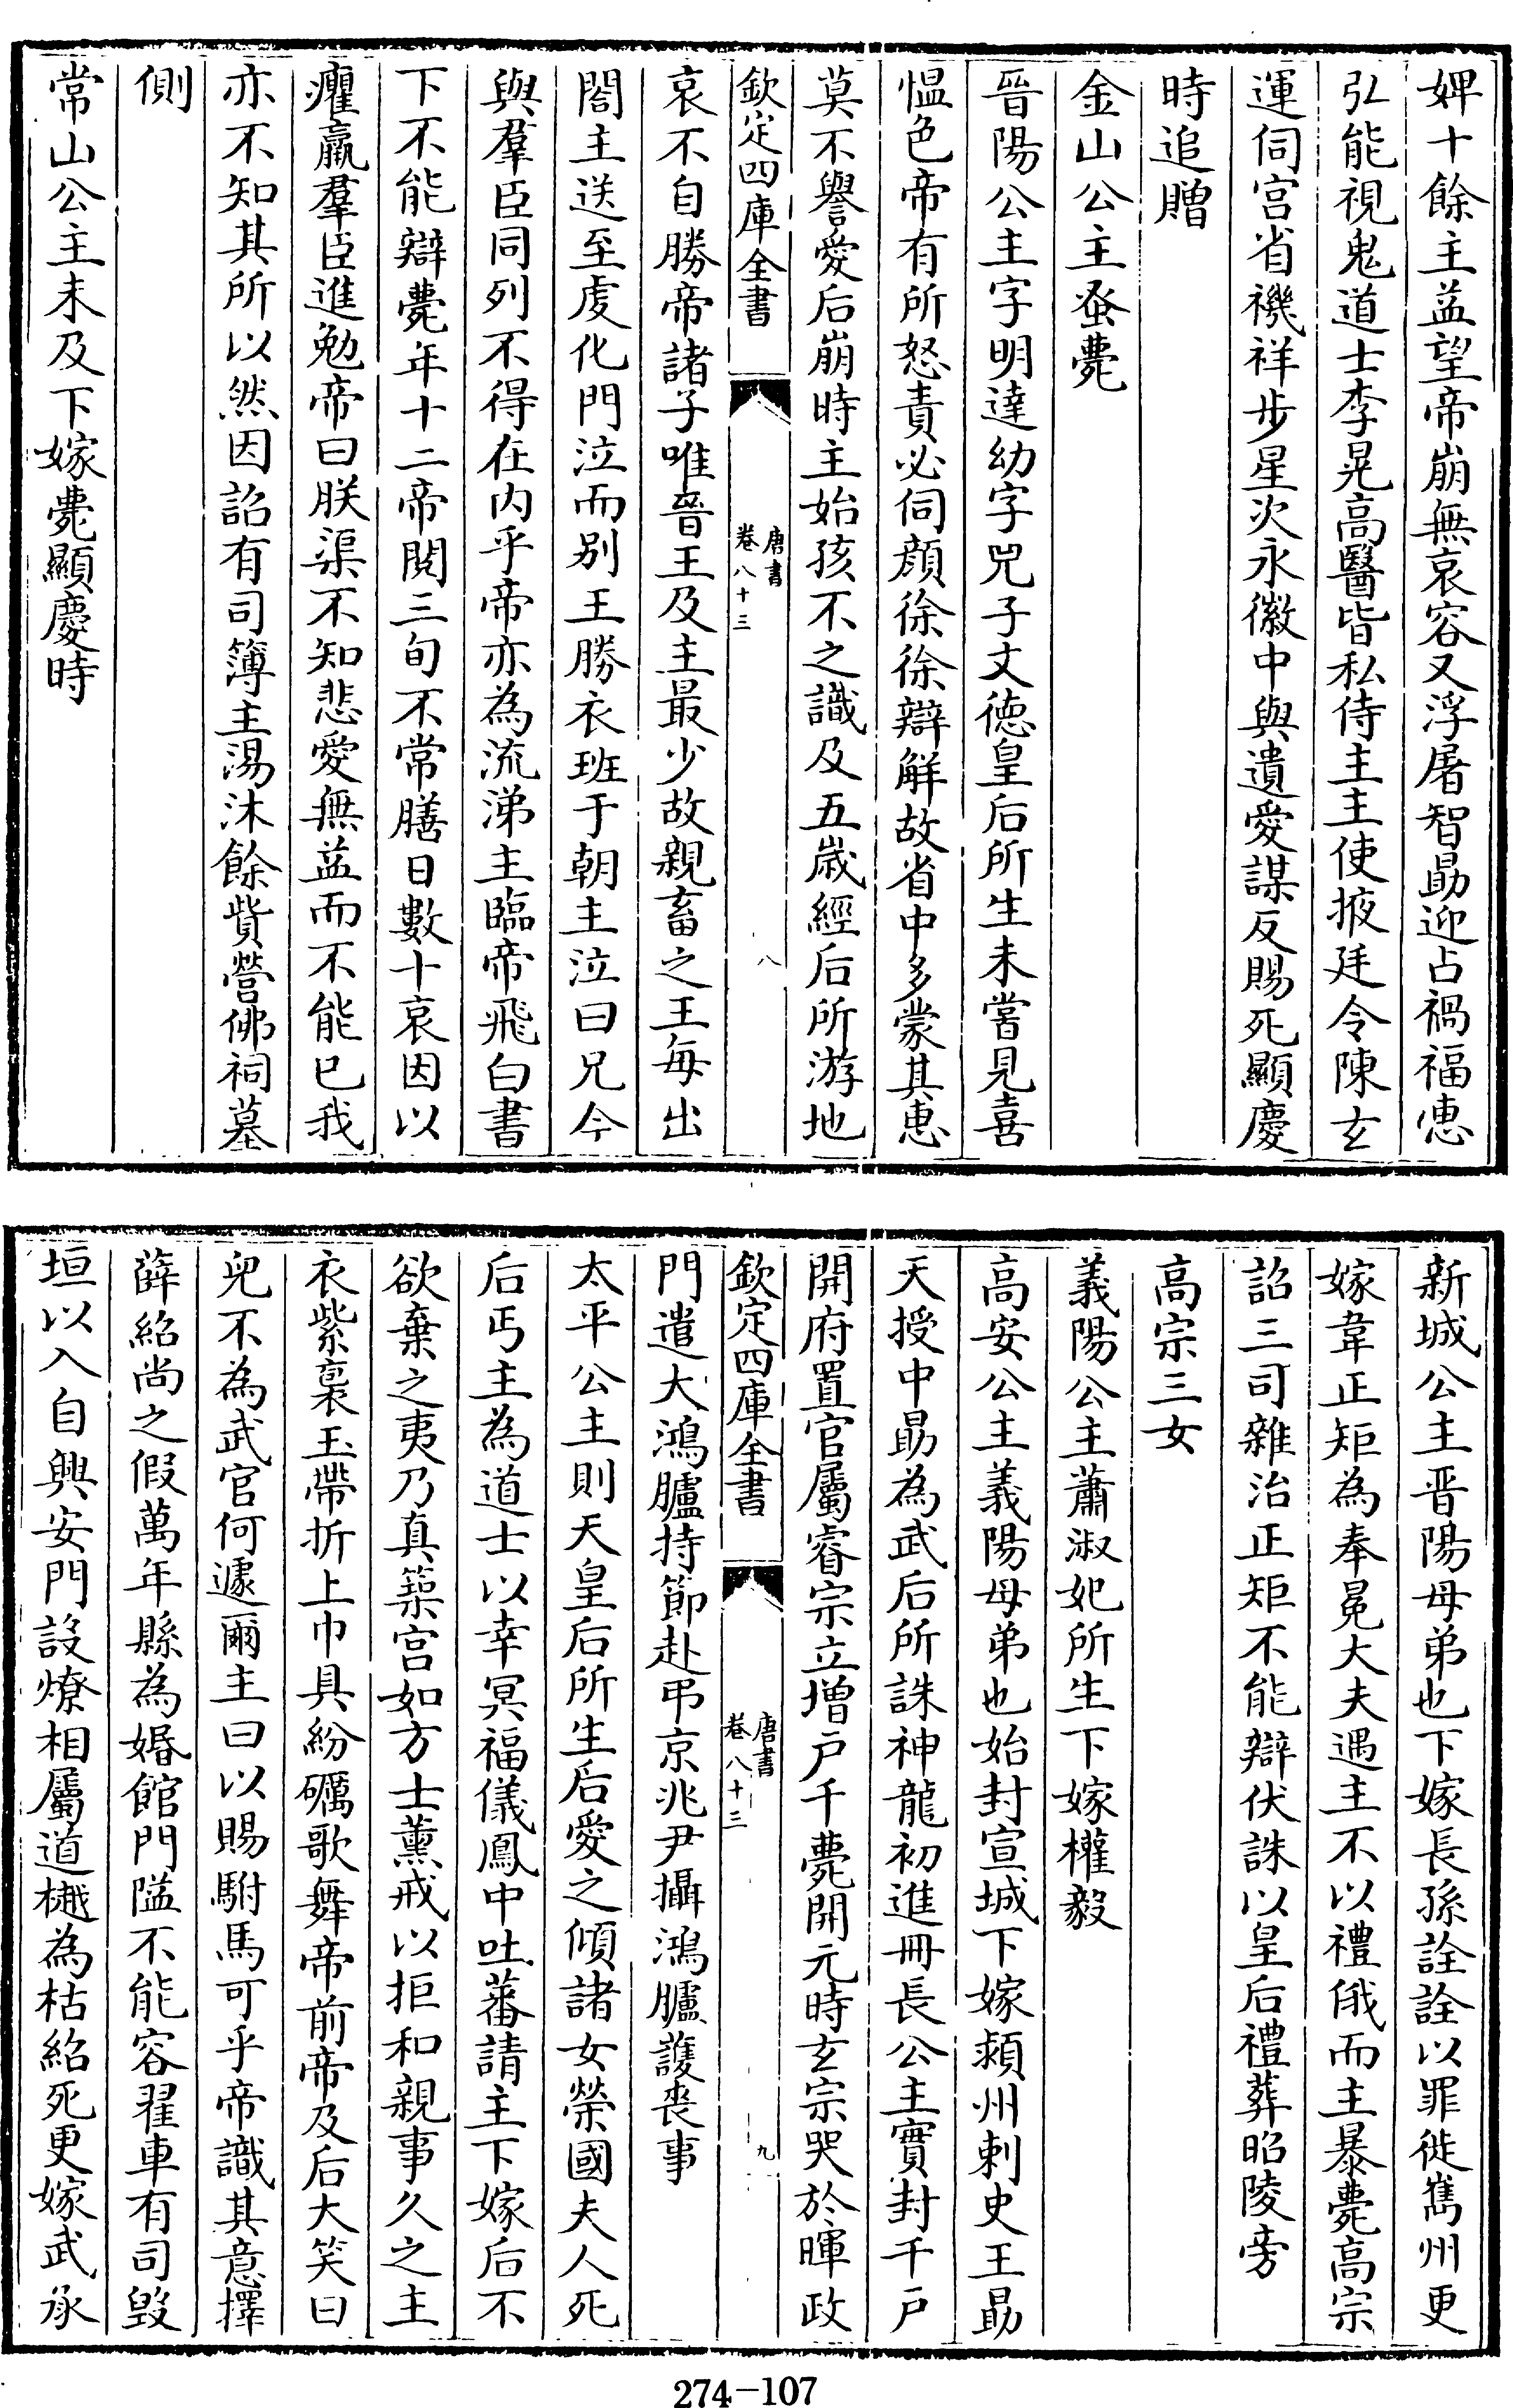 婢十餘主益望帝崩無哀容又浮屠智勗迎占禍福惠
弘能視鬼道士李晃高醫皆私侍主主使掖廷令陳玄
運伺宫省禨祥步星次永徽中與遺愛謀反賜死顯慶
時追贈
金山公主蚤薨
晉陽公主字明達幼字兕子文德皇后所生未嘗見喜
愠色帝有所怒責必伺顔徐徐辯解故省中多蒙其惠
莫不譽愛后崩時主始孩不之識及五歲經后所游地
欽定四庫全書
唐書
卷八十三
八
哀不自勝帝諸子唯晉王及主最少故親畜之王每出
閤主送至虔化門泣而别王勝衣班于朝主泣曰兄今
與羣臣同列不得在内乎帝亦為流涕主臨帝飛白書
下不能辯薨年十二帝閲三旬不常膳日數十哀因以
癯羸羣臣進勉帝曰朕渠不知悲愛無益而不能已我
亦不知其所以然因詔有司簿主湯沐餘貲營佛祠墓
側
常山公主未及下嫁薨顯慶時
新城公主晉陽母弟也下嫁長孫詮詮以罪徙巂州更
嫁韋正矩為奉冕大夫遇主不以禮俄而主暴薨高宗
詔三司雜治正矩不能辯伏誅以皇后禮葬昭陵旁
高宗三女
義陽公主蕭淑妃所生下嫁權毅
高安公主義陽母弟也始封宣城下嫁潁州刺史王勗
天授中勗為武后所誅神龍初進冊長公主實封千戶
開府置官屬睿宗立增戶千薨開元時玄宗哭於暉政
欽定四庫全書
唐書
卷八十三
九
門遣大鴻臚持節赴弔京兆尹攝鴻臚護喪事
太平公主則天皇后所生后愛之傾諸女榮國夫人死
后丐主為道士以幸冥福儀鳳中吐蕃請主下嫁后不
欲棄之夷乃真築宫如方士薰戒以拒和親事久之主
衣紫袍玉帶折上巾具紛礪歌舞帝前帝及后大笑曰
兒不為武官何遽爾主曰以賜駙馬可乎帝識其意擇
薛紹尚之假萬年縣為婚館門隘不能容翟車有司毀
垣以入自興安門設燎相屬道樾為枯紹死更嫁武承
274-107